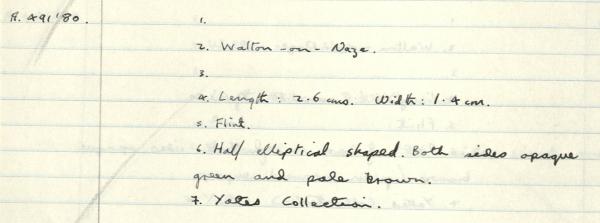 A. 491'80.
1.
2. Walton-on-Naze.
3.
4. Length: 2.6 cms. Width: 1.4 cm.
5. Flint.
6. Half elliptical shaped. Both sides opaque
green and pale brown.
7. Yates Collection.